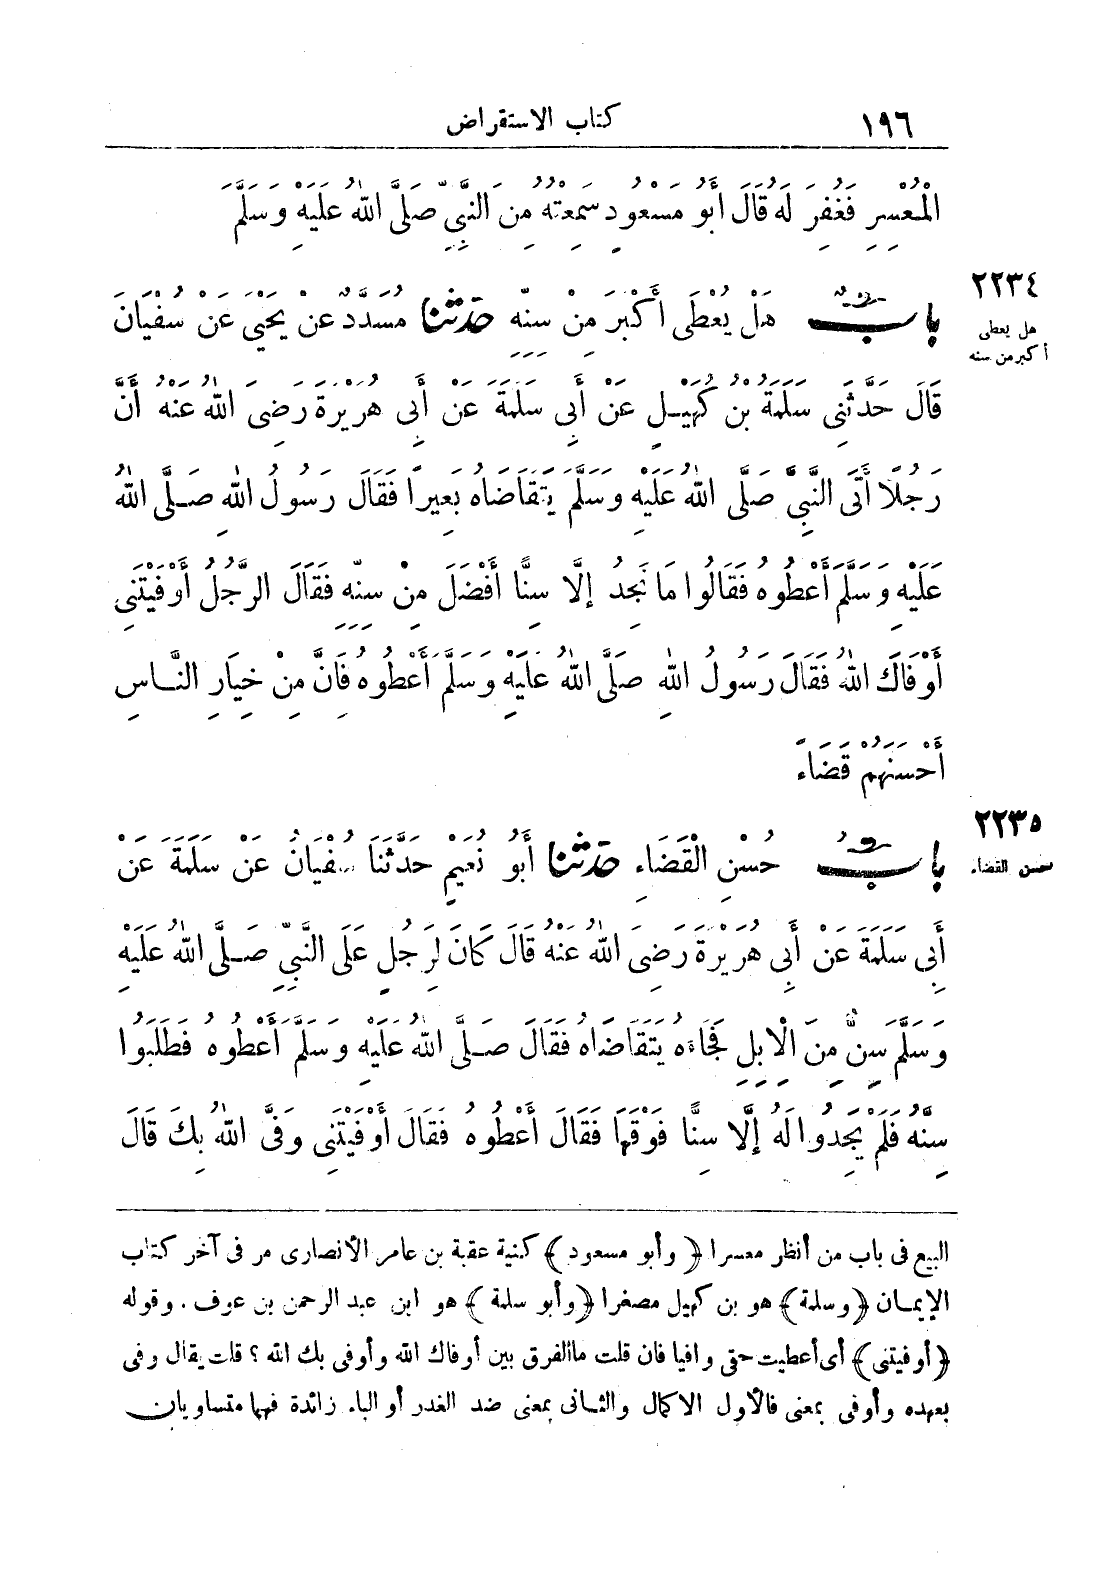 ١٩٦
كتاب الاستقراض
الْمُعْسِرِ فَغُفِرَ لَهُ قَالَ أَبُو مَسْعُودٍ سَمِعْتُهُ مِنَ النَّبِيِّ صَلَّى اللهُ عَلَيْهِ وَسَلَّمَ
٢٢٣٤
هل يعطى
أكبر من سنه
بابٌ هَلْ يُعْطَى أَكْبَرَ مِنْ سِنِّهِ حدثنا مُسَدَّدٌ عَنْ يَحْيَى عَنْ سُفْيَانَ
قَالَ حَدَّثَنِى سَلَمَةُ بْنُ كُهَيْلٍ عَنْ أَبِى سَلَمَةَ عَنْ أَبِى هُرَيْرَةَ رَضِىَ اللهُ عَنْهُ أَنَّ
رَجُلًا أَتَى النَّبِيَّ صَلَّى اللهُ عَلَيْهِ وَسَلَّمَ يَتَقَاضَاهُ بَعِيرًا فَقَالَ رَسُولُ اللهِ صَلَّى اللهُ
عَلَيْهِ وَسَلَّمَ أَعْطُوهُ فَقَالُوا مَا نَجِدُ إِلَّا سِنًّا أَفْضَلَ مِنْ سِنِّهِ فَقَالَ الرَّجُلُ أَوْفَيْتَنِى
أَوْفَاكَ اللهُ فَقَالَ رَسُولُ اللهِ صَلَّى اللهُ عَلَيْهِ وَسَلَّمَ أَعْطُوهُ فَإِنَّ مِنْ خِيَارِ النَّاسِ
أَحْسَنَهُمْ قَضَاءً
٢٢٣٥
حسن القضاء
بابُ حُسْنِ الْقَضَاءِ حدثنا أَبُو نُعَيْمٍ حَدَّثَنَا سُفْيَانُ عَنْ سَلَمَةَ عَنْ
أَبِى سَلَمَةَ عَنْ أَبِى هُرَيْرَةَ رَضِىَ اللهُ عَنْهُ قَالَ كَانَ لِرَجُلٍ عَلَى النَّبِيِّ صَلَّى اللهُ عَلَيْهِ
وَسَلَّمَ سِنٌّ مِنَ الْإِبِلِ فَجَاءَهُ يَتَقَاضَاهُ فَقَالَ صَلَّى اللهُ عَلَيْهِ وَسَلَّمَ أَعْطُوهُ فَطَلَبُوا
سِنَّهُ فَلَمْ يَجِدُوا لَهُ إِلَّا سِنًّا فَوْقَهَا فَقَالَ أَعْطُوهُ فَقَالَ أَوْفَيْتَنِى وَفَى اللهُ بِكَ قَالَ
البيع فى باب من أنظر معسرا ﴿وأبو مسعود﴾ كنية عقبة بن عامر الأنصارى مر فى آخر كتاب
الإيمان ﴿وسلمة﴾ هو بن كهيل مصغرا ﴿وأبو سلمة﴾ هو ابن عبد الرحمن بن عوف. وقوله
﴿أوفيتنى﴾ أى أعطيت حقى وافيا فان قلت ما الفرق بين أوفاك الله وأوفى بك الله؟ قلت يقال وفى
بعهده وأوفى بمعنى فالأول الاكمال والثانى بمعنى ضد الغدر أو الباء زائدة فهما متساويان